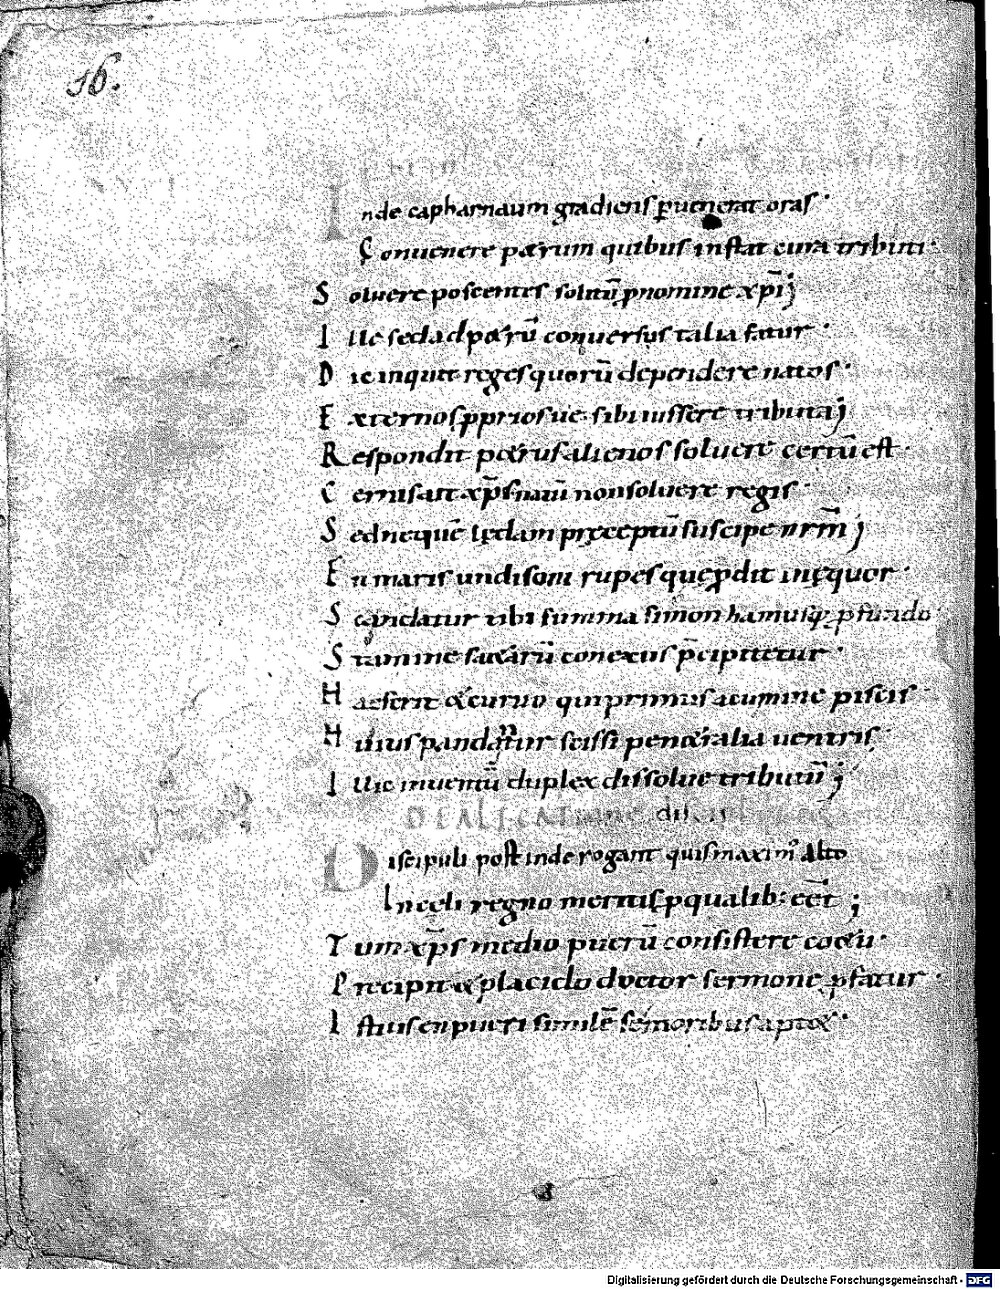 16.
Inde capharnaum gradiens ꝑuenerat oras ·
Conuenere petrum quibus instat cura tributi ·
Soluere poscentes solitũ ꝓ nomine xp̃i ;
Ille sed ad petrũ conuersus talia fatur ·
Dic inquit reges quorũ dependere natos ·
Externos ꝓprios ue sibi iussere tributa ;
Respondit petrus alienos soluere certũ est ·
Cerni sat xp̃s natũ non soluere regis ·
Sed neque
En maris undisoni rupes quę ꝓdit in ęquor ·
Scandatur tibi summa simon hamusq; ꝓfundo ·
Stamine saetarũ conexus p̃cipitetur ·
Haeserit et curuo qui primus acumine piscis ·
Huius pandantur scissi penetralia uentris ·
Illic inuentũ duplex dissolue tributũ ;
Discipuli post inde rogant quis maxim' alto
In cęli regno meritis ꝓ qualib: eẽt ;
Tum xp̃s medio puerũ consistere coetu ·
Precipit et placido doctor sermone ꝓfatur ·
Istius en pueri similẽ se moribus aptet ·
Digitalisierung gefördert durch die Deutsche Forschungsgemeinschaft - DFG